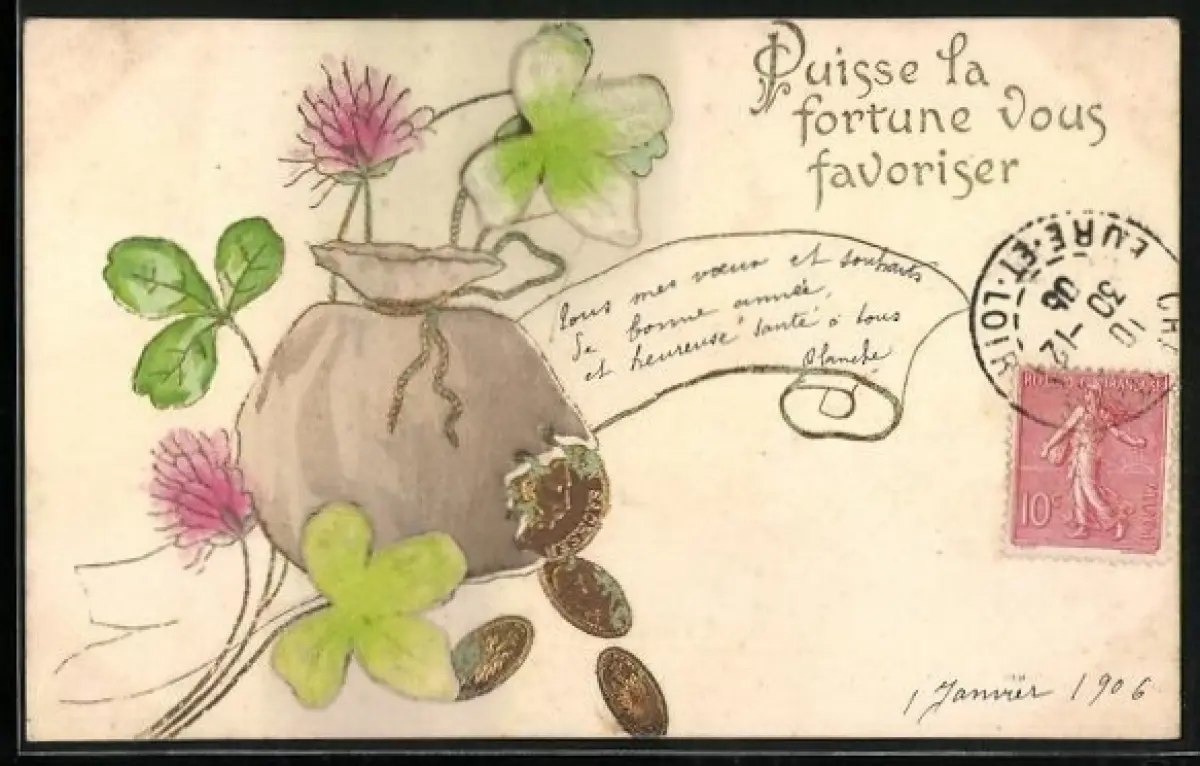 Puisse la
fortune vous
favoriser
Tous mes vœux et souhaits
de bonne année,
et heureuse santé à tous
Blanche
EURE-ET-LOIR
10
30 -12
05
10c
1 Janvier 1906